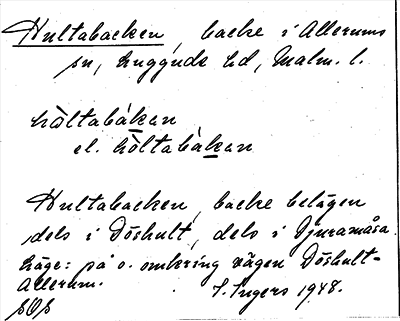 Hultabacken, backe i Allerums
sn, Luggude hd, Malm. l.
hòltabákan
el. hòltabàkan
Hultabacken, backe belägen
dels i Döshult, dels i Djuramåsa.
Läge: på o. omkring vägen Döshult-
Allerum.
I. Ingers 1948.